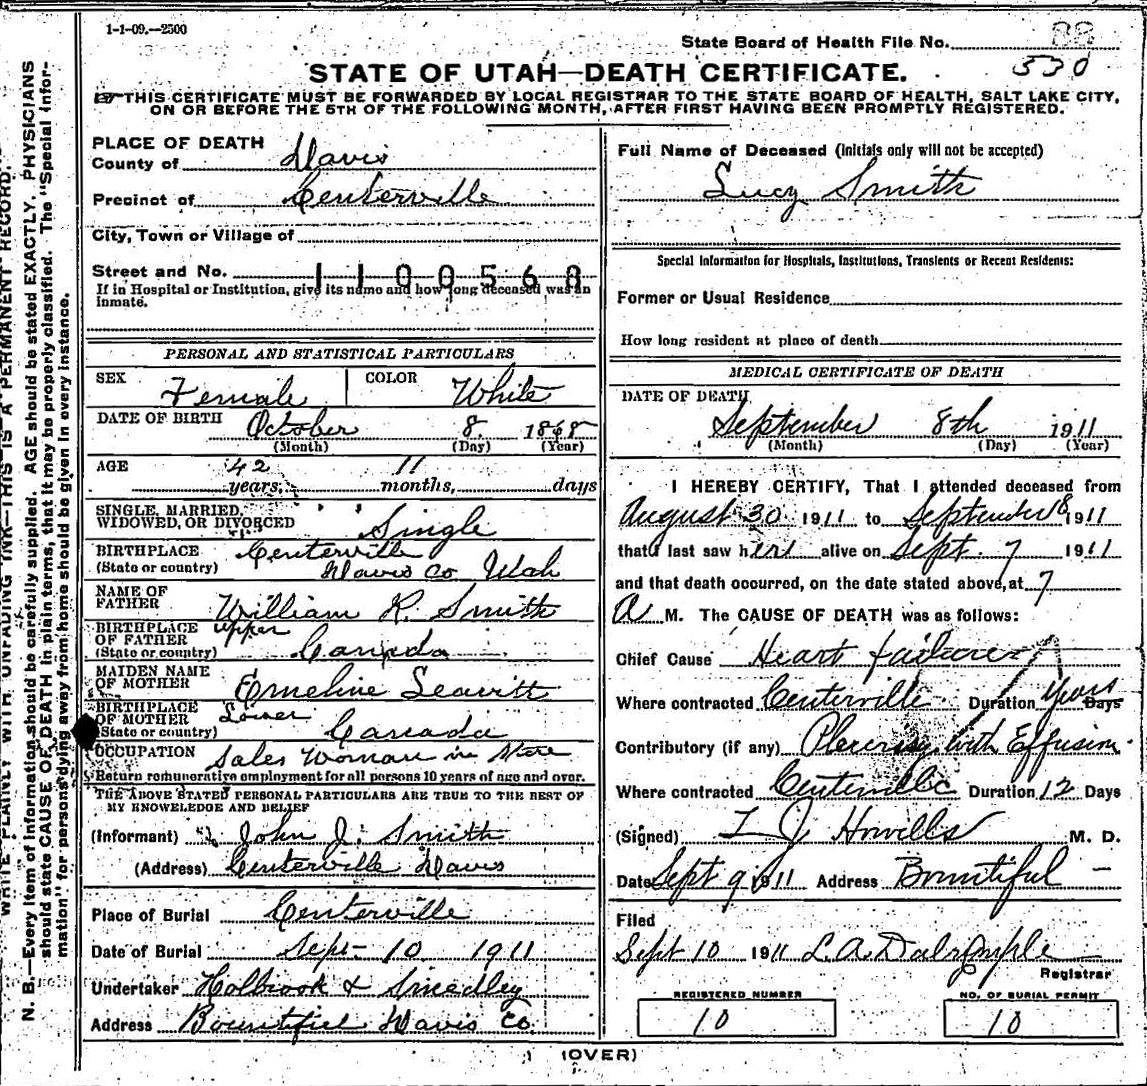 1-1-09.--2500
State Board of Health File No. 88
530
STATE OF UTAH—DEATH CERTIFICATE.
THIS CERTIFICATE MUST BE FORWARDED BY LOCAL REGISTRAR TO THE STATE BOARD OF HEALTH, SALT LAKE CITY,
ON OR BEFORE THE 5TH OF THE FOLLOWING MONTH, AFTER FIRST HAVING BEEN PROMPTLY REGISTERED.
WRITE PLAINLY WITH UNFADING INK—THIS IS A PERMANENT RECORD.
N. B.—Every item of information should be carefully supplied. AGE should be stated EXACTLY. PHYSICIANS
should state CAUSE OF DEATH in plain terms, that it may be properly classified. The "Special Infor-
mation" for persons dying away from home should be given in every instance.
PLACE OF DEATH
County of Davis
Precinct of Centerville
City, Town or Village of
Street and No. 1100568
If in Hospital or Institution, give its name and how long deceased was an
inmate.
PERSONAL AND STATISTICAL PARTICULARS
SEX Female COLOR White
DATE OF BIRTH October 8 1868
(Month) (Day) (Year)
AGE 42 11
years, months, days
SINGLE, MARRIED,
WIDOWED, OR DIVORCED Single
BIRTHPLACE Centerville
(State or country) Davis Co Utah
NAME OF
FATHER William R. Smith
BIRTHPLACE Upper
OF FATHER
(State or country) Canada
MAIDEN NAME
OF MOTHER Emeline Leavitt
BIRTHPLACE Lower
OF MOTHER
(State or country) Canada
OCCUPATION Sales Woman in Store
Return remunerative employment for all persons 10 years of age and over.
THE ABOVE STATED PERSONAL PARTICULARS ARE TRUE TO THE BEST OF
MY KNOWLEDGE AND BELIEF
(Informant) John J. Smith
(Address) Centerville Davis
Place of Burial Centerville
Date of Burial Sept- 10 1911
Undertaker Holbrook & Smedley
Address Bountiful Davis Co.
Full Name of Deceased (Initials only will not be accepted)
Lucy Smith
Special Information for Hospitals, Institutions, Transients or Recent Residents:
Former or Usual Residence
How long resident at place of death
MEDICAL CERTIFICATE OF DEATH
DATE OF DEATH
September 8th 1911
(Month) (Day) (Year)
I HEREBY CERTIFY, That I attended deceased from
August 30 1911 to September 8 1911
that I last saw her alive on Sept. 7 1911
and that death occurred, on the date stated above, at 7
A M. The CAUSE OF DEATH was as follows:
Chief Cause Heart failure
Where contracted Centerville Duration years Days
Contributory (if any) Pleurisy with Effusion
Where contracted Centerville Duration 12 Days
(Signed) J Howells M. D.
Date Sept 9 1911 Address Bountiful -
Filed
Sept 10 1911 L. A. Dalrymple
Registrar
REGISTERED NUMBER
10
NO. OF BURIAL PERMIT
10
(OVER)